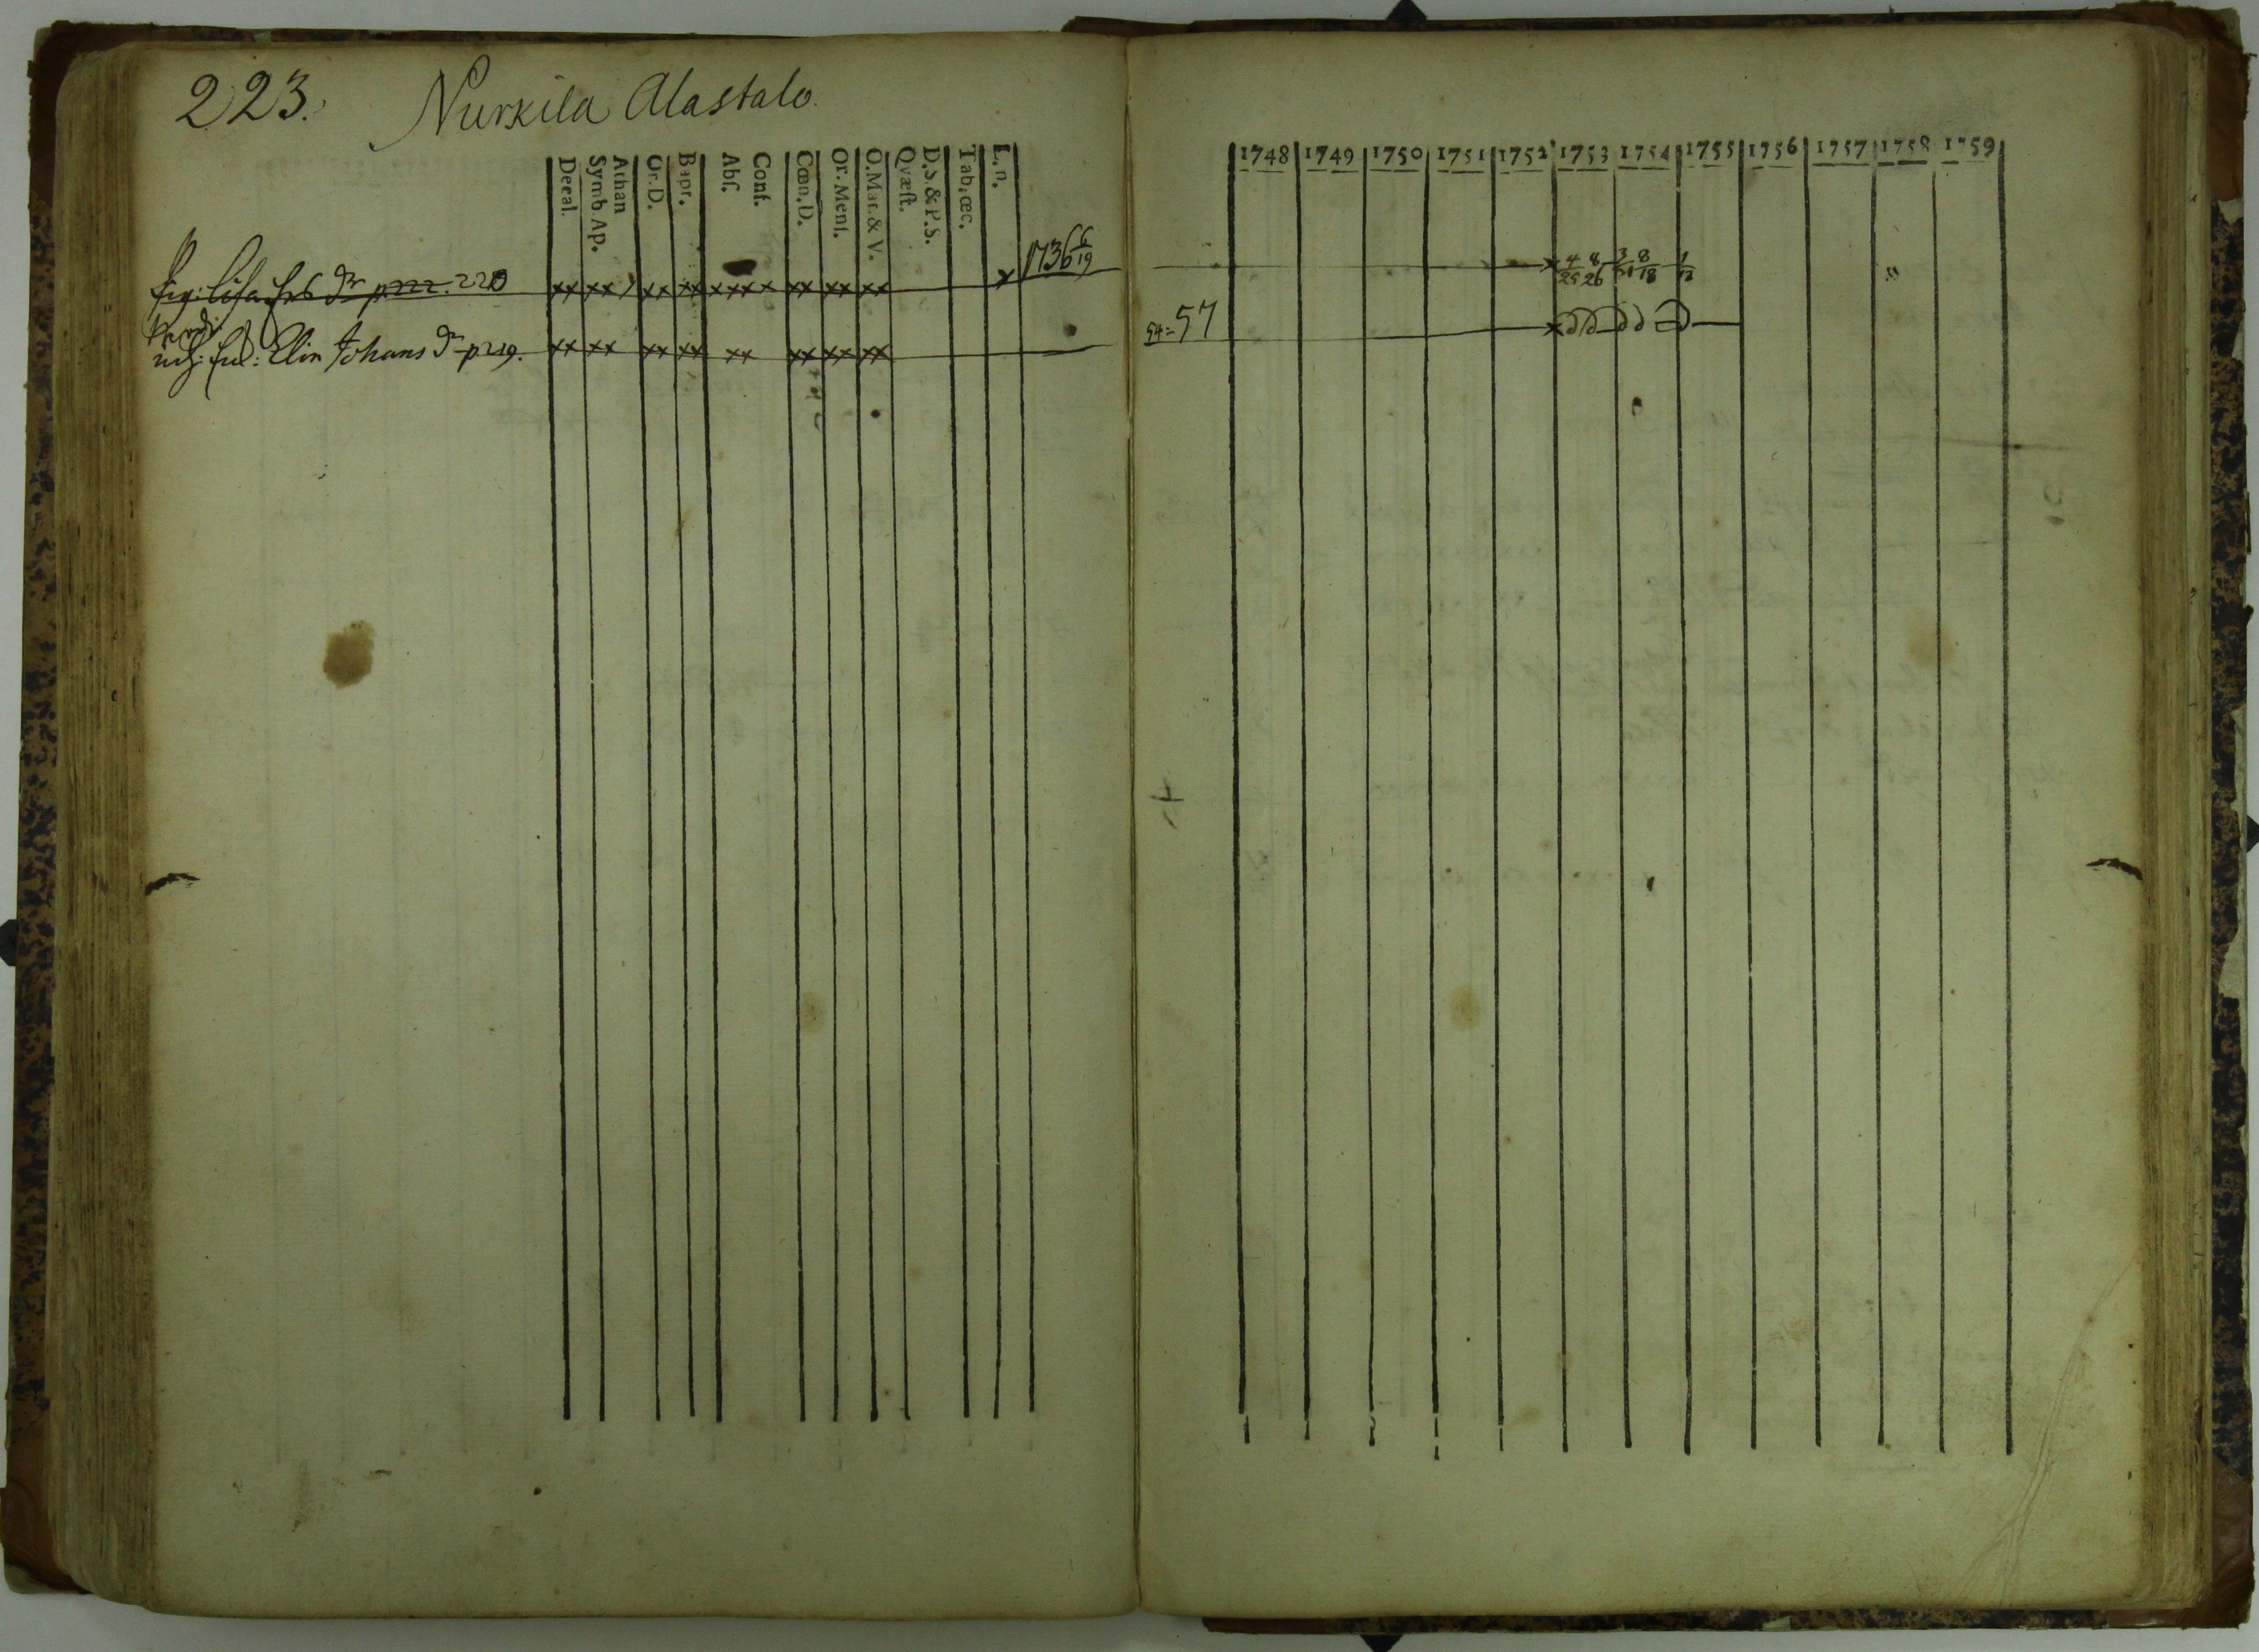 223. Nurkila Alastalo.
Decal. Symb. Ap. Athan Or. D. Bapt. Abſ. Conf. Cœn. D. Or. Menſ. O. Mar. & V. Qvæſt. D. S. & P. S. Tab. œc. L. n.
1748 1749 1750 1751 1752 1753 1754 1755 1756 1757 1758 1759
Lisa p 222. 220 xx xx xx xx xxxx xx xx xx x 1736 6/19 x 4/25 8/26 3/31 8/18 1/12
Elin Johans dr p 219. xx xx xx xx xx xx xx xx 54=57 x